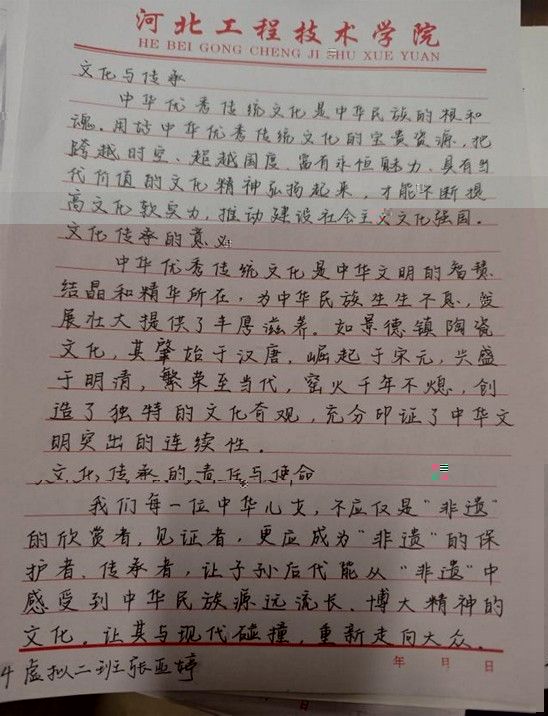 河北工程技术学院
HE BEI GONG CHENG JI SHU XUE YUAN
文化与传承
中华优秀传统文化是中华民族的根和
魂。用好中华优秀传统文化的宝贵资源，把
跨越时空、超越国度、富有永恒魅力、具有当
代价值的文化精神弘扬起来，才能不断提
高文化软实力，推动建设社会主义文化强国。
文化传承的意义
中华优秀传统文化是中华文明的智慧
结晶和精华所在，为中华民族生生不息，发
展壮大提供了丰厚滋养。如景德镇陶瓷
文化，其肇始于汉唐，崛起于宋元，兴盛
于明清，繁荣至当代，窑火千年不熄，创
造了独特的文化奇观，充分印证了中华文
明突出的连续性。
文化传承的责任与使命
我们每一位中华儿女，不应仅是“非遗”
的欣赏者，见证者，更应成为“非遗”的保
护者、传承者，让子孙后代能从“非遗”中
感受到中华民族源远流长、博大精神的
文化。让其与现代碰撞，重新走向大众。
4虚拟二班张亚婷
年 月 日
日